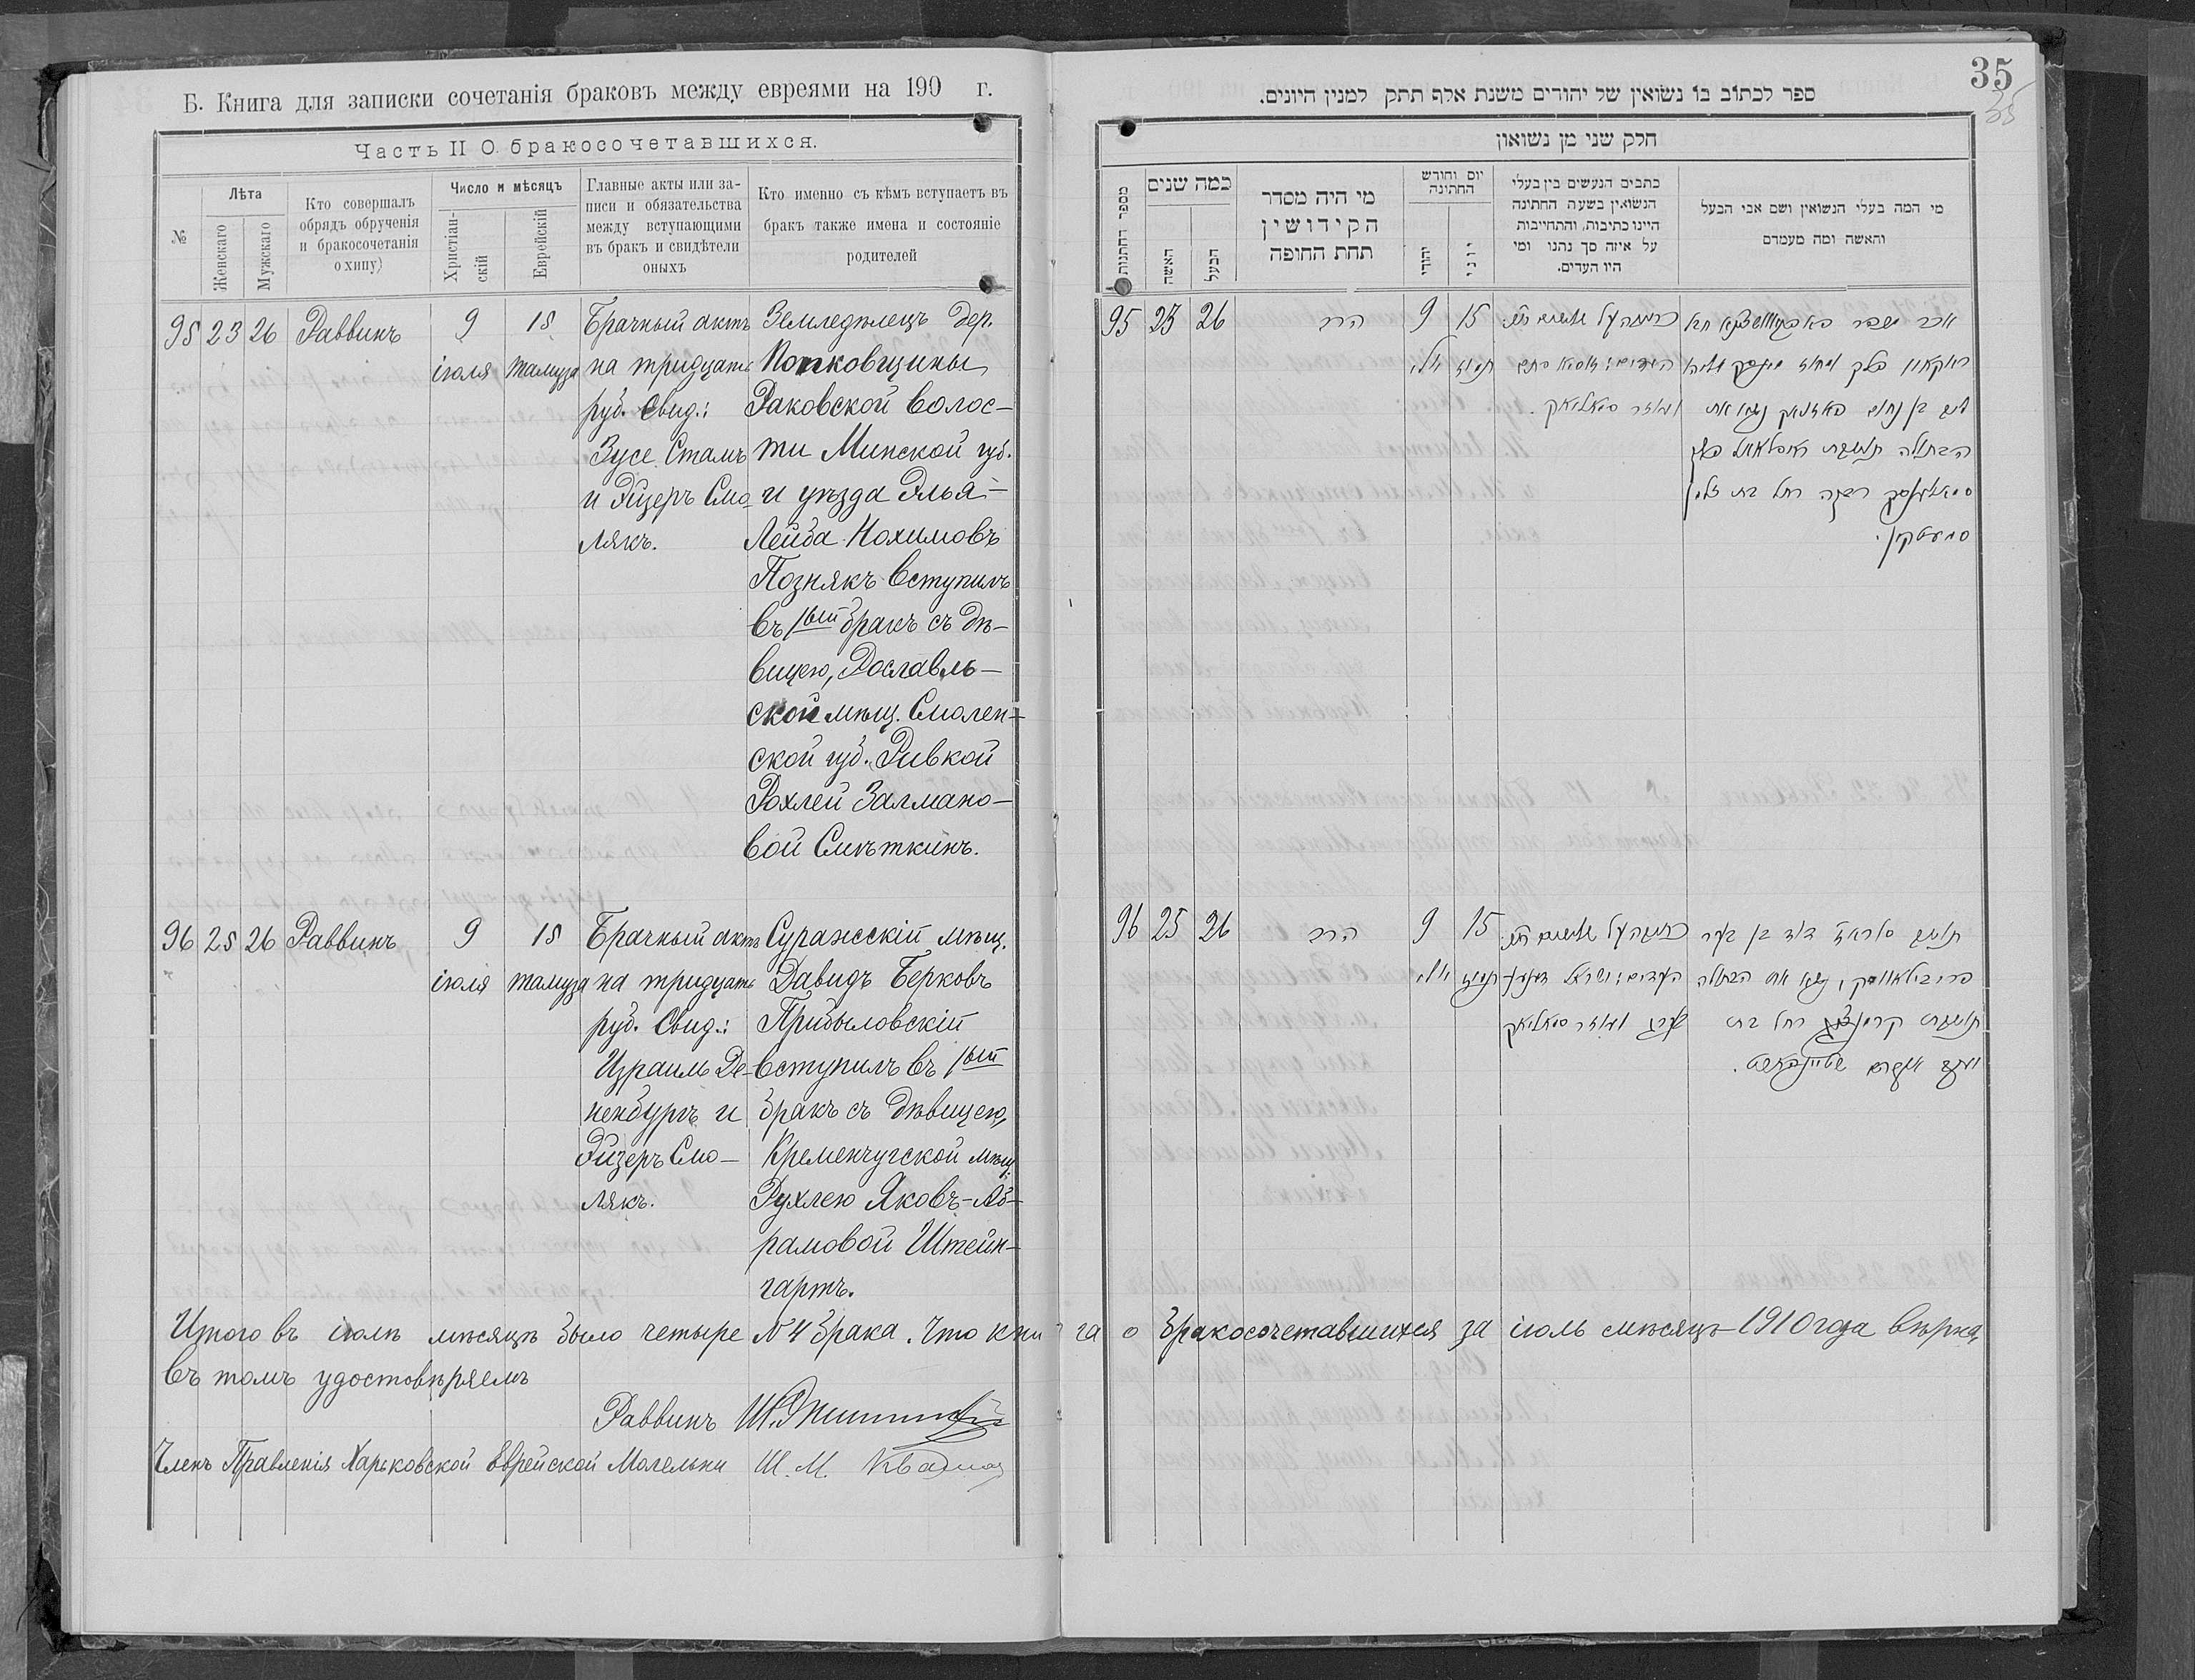 Б. Книга для записки сочетанія браковъ между евреями на 190 г.
Часть II О бракосочетавшихся.
№
Лѣта
Женскаго
Мужскаго
Кто совершалъ
обрядъ обрученія
и бракосочетанія
о хипу)
Число и мѣсяцъ
Христіан-
скій
Еврейскій
Главные акты или за-
писи и обязательства
между вступающими
въ бракъ и свидѣтели
оныхъ
Кто именно съ кѣмъ вступаетъ въ
бракъ также имена и состояніе
родителей
95 23 26 Раввинъ
9
іюля
15
тамуза
Брачный актъ
на тридцать
руб. Свид.:
Зусе Стамъ
и Эйзеръ Смо-
лякъ.
Земледѣлецъ дер.
Попковщины
Раковской волос-
ти Минской губ.
и уѣзда Элья-
Лейба Нохимовъ
Познякъ вступилъ
въ 1ый бракъ съ дѣ-
вицею, Рославль-
ской мѣщ. Смолен-
ской губ. Ривкой
Рохлей Залмано-
вой Смѣткинъ.
96 25 26 Раввинъ
9
іюля
15
тамуза
Брачный актъ
на тридцать
руб. Свид.:
Израиль Де-
ненбургъ и
Эйзеръ Смо-
лякъ.
Суражскій мѣщ.
Давидъ Берковъ
Прибыловскій
вступилъ въ 1ый
бракъ съ дѣвицею,
Кременчугской мѣщ.
Рухлею Яковъ-Аб-
рамовой Штейн-
гартъ.
Итого въ іюлѣ мѣсяцѣ было четыре № 4 брака. Что книга о бракосочетавшихся за іюль мѣсяцъ 1910 года вѣрна,
въ томъ удостовѣряемъ
Раввинъ
Членъ Правленія Харьковской Еврейской Молельни Ш. М.
35
35
ספר לכתוב בו נשואין של יהודים משנת אלף תתק למנין היונים.
חלק שני מן נשואון
מספר החתונות
כמה שנים
האשה
הבעל
מי היה מסדר
הקידושין
תחת החופה
יום וחודש
החתונה
יהודי
יוני
כתבים הנעשים בין בעלי
הנשואין בשעה החתונה
היינו כתיבות, והתחייבות
על איזה סך נתנו ומי
היו העדים.
מי המה בעלי הנשואין ושם אבי הבעל
והאשה ומה מעמדם
95 23 26
הרב
9
יולי
15
תמוז
96 25 26
הרב
9
יולי
15
תמוז